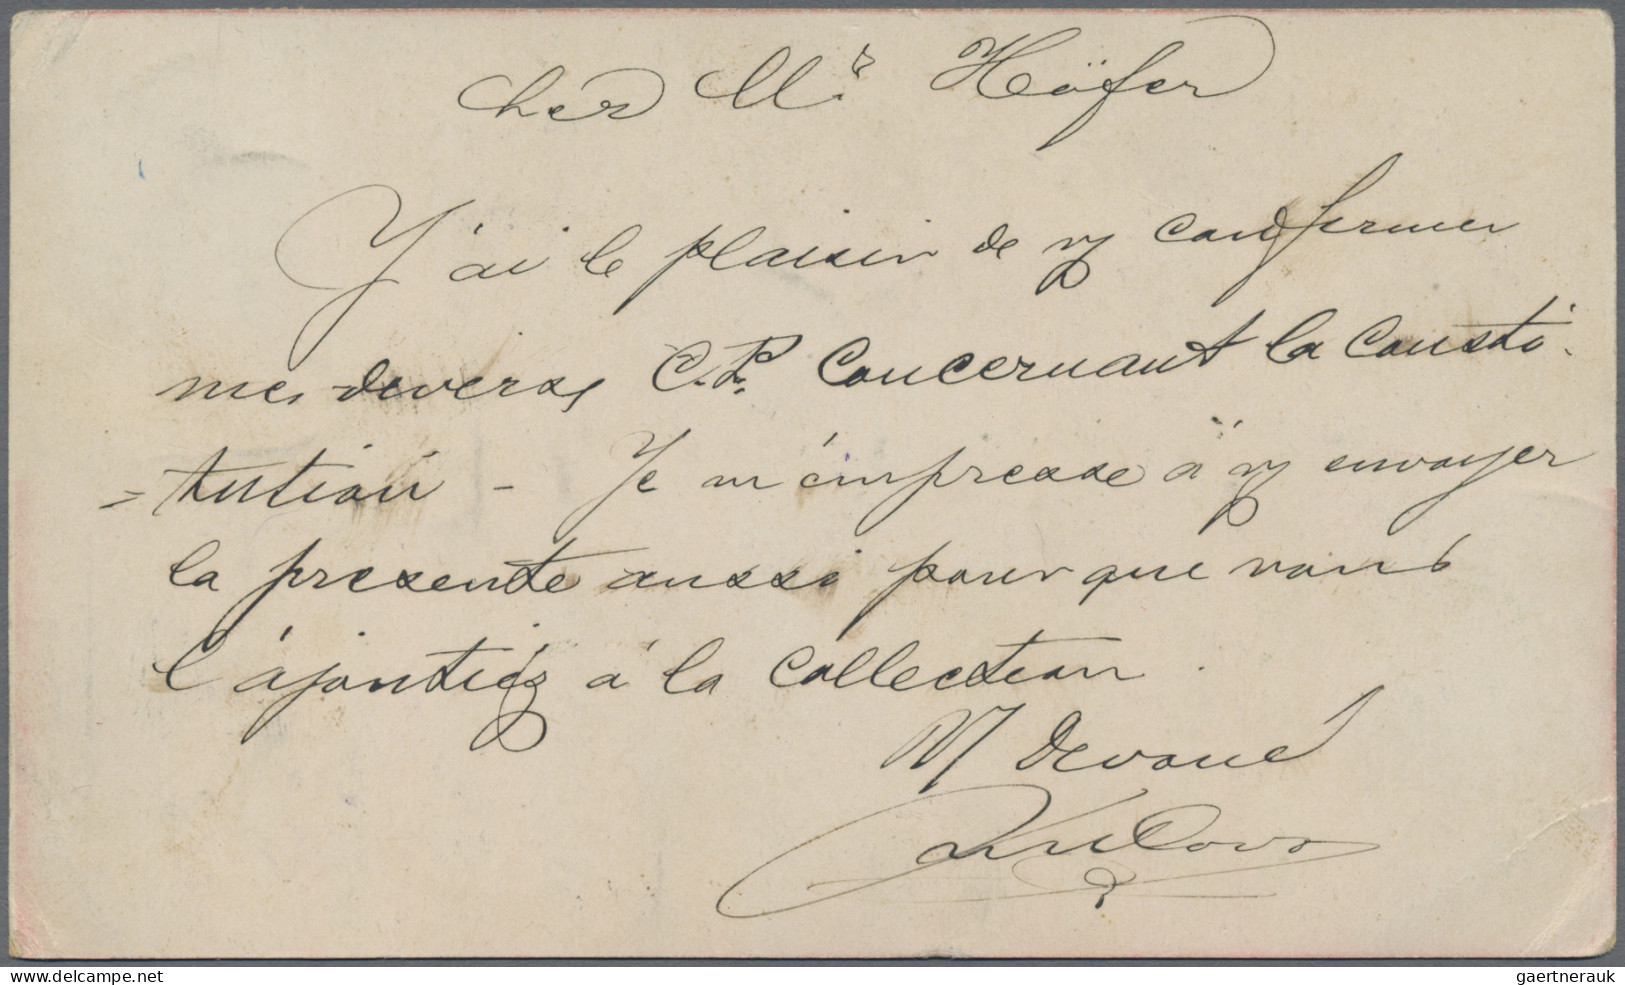 Cher Mr. Höfer
J'ai le plaisin de vs confirmer
mes diverses C.P. Concernant la Consti-
=tution - Je m'empresse à vs envoyer
la presente aussi pour que vous
l'ajoutiéz à la Collection.
M Devoué
delcampe.net
gaertnerauk